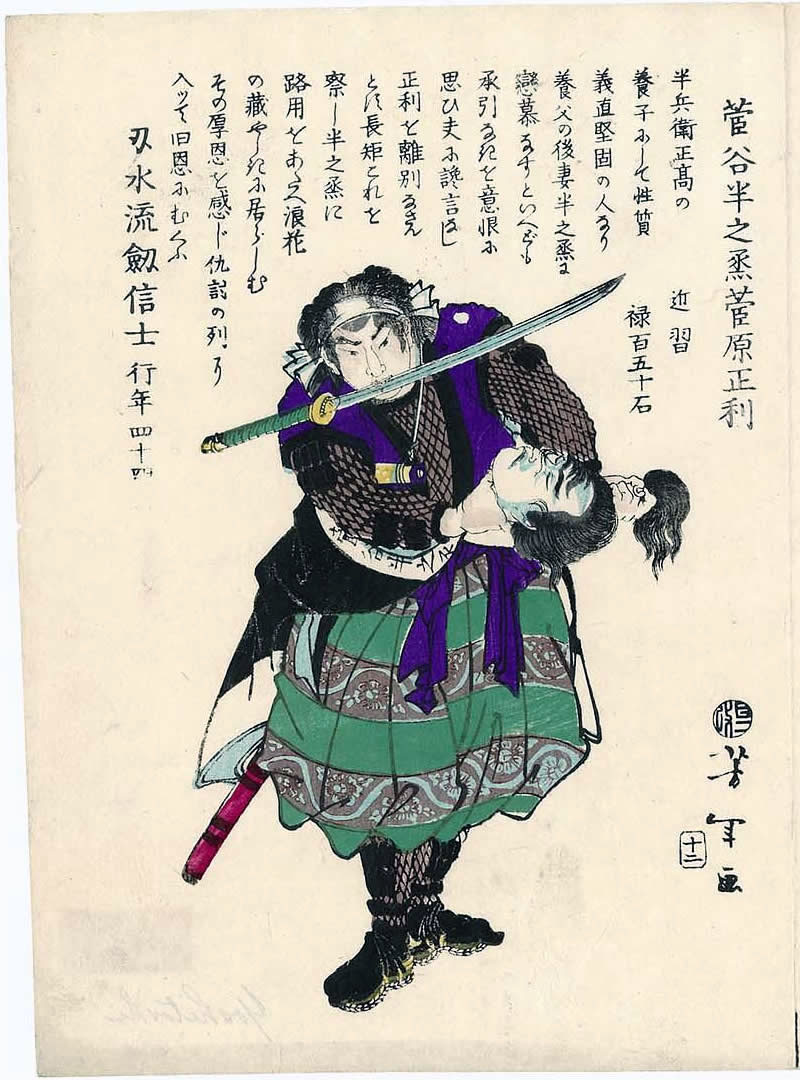 菅谷半之烝菅原正利
近習
禄百五十石
半兵衛正髙の
養子にして性質
義直堅固の人なり
養父の後妻半之烝に
戀慕なすといへども
承引なきを意恨に
思ひ夫に讒言なし
正利を離別なさん
とす長矩これを
察し半之烝に
路用をあたへ浪花
の藏やしきに居らしむ
その厚恩を感じ仇討の列に
入ツて旧恩にむくふ
刄水流劔信士
行年四十四
芳年画
十二